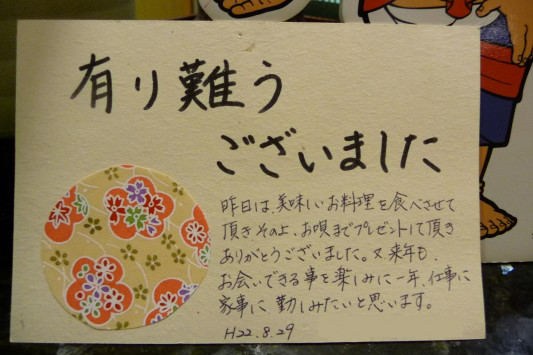 有り難う
ございました
昨日は、美味しいお料理を食べさせて
頂きその上、お唄までプレゼントして頂き
ありがとうございました。又来年も、
お会いできる事を楽しみに一年、仕事に
家事に勤しみたいと思います。
H22.8.29